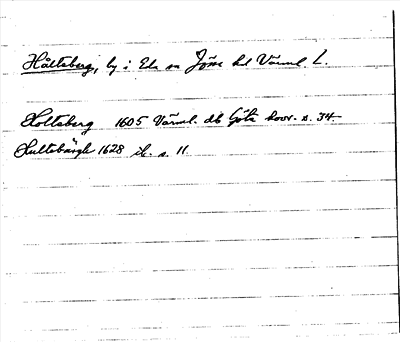 Hålteberg, by i Eda sn Jösse hd Värml L.
Holteberg 1605 Värml. db Göta koor. s. 34
Hultebärgh 1628 ib. s. 11.